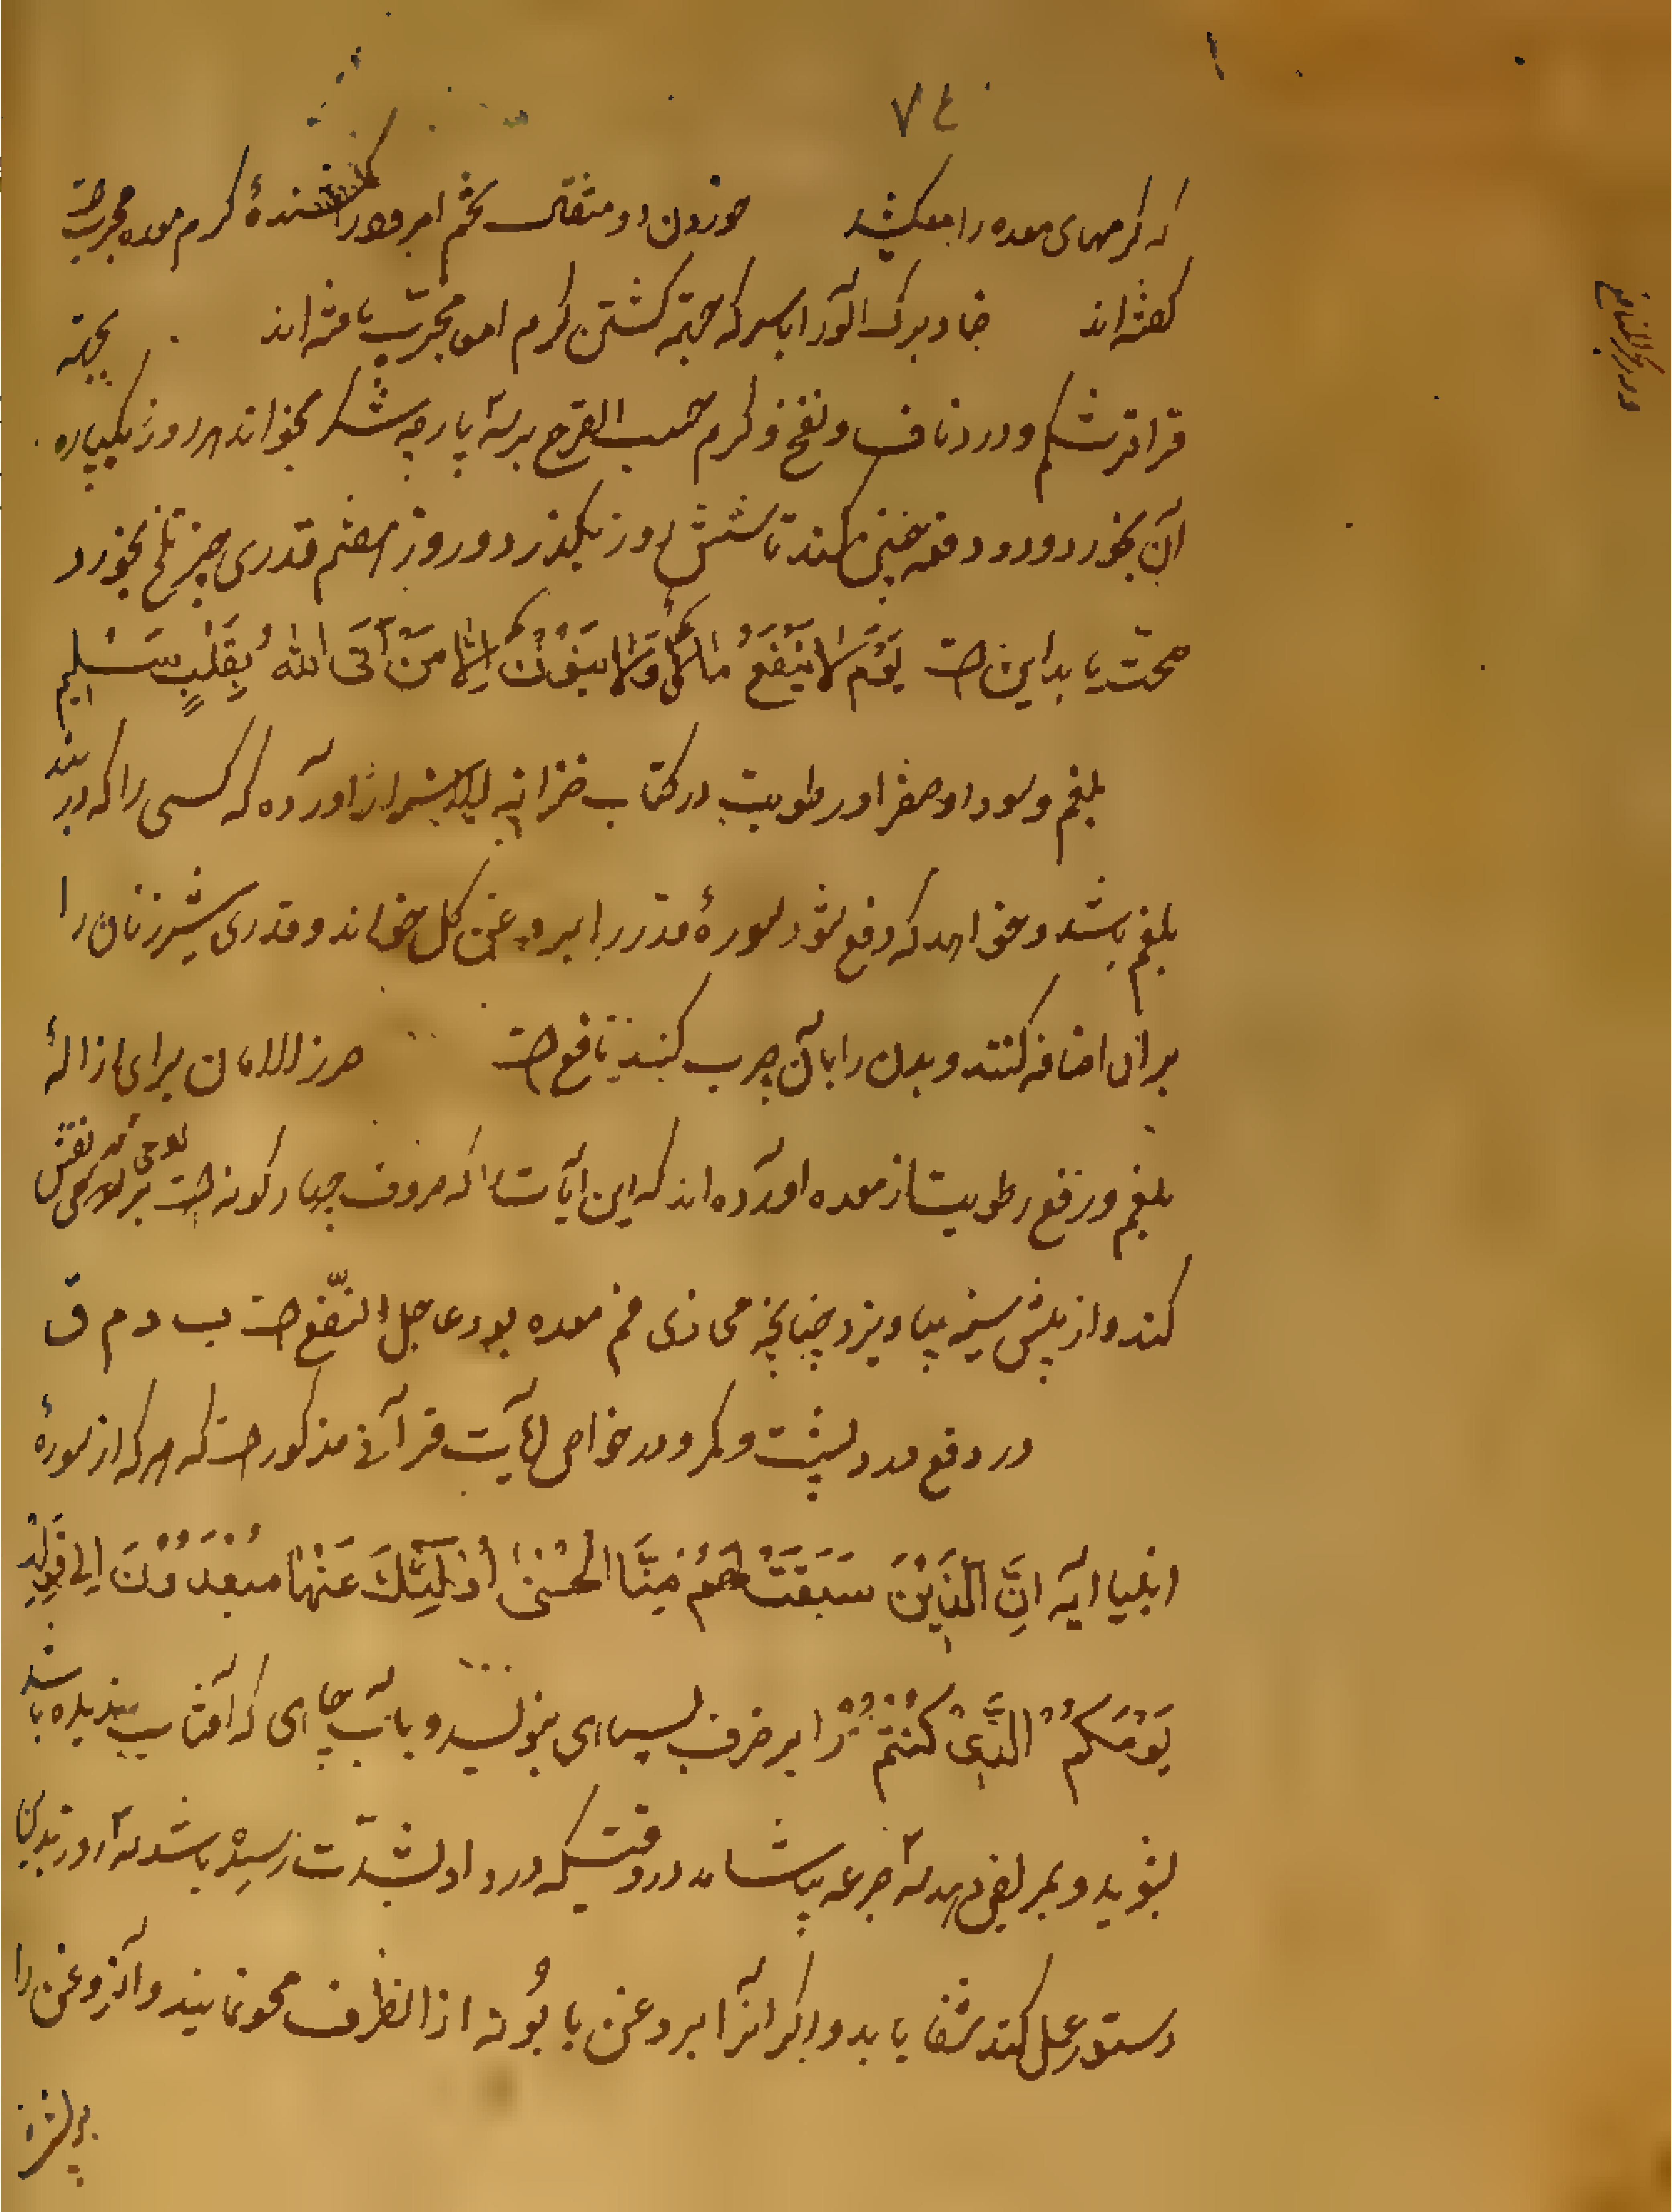 ٧٤
که کرمهای معده را میکشد خوردن دو مثقال تخم امرود را کشندهٔ کرم معده مجرب است
گفته‌اند ضماد برک آلو را با سرکه جهة کشتن کرم امعا مجرّب یافته‌اند بجهة
قراقر شکم و درد ناف و نفخ و کرم حب القرع بر سه پارچه شکر بخواند هر روز یکپاره
آن بخورد و دو دفعه چنین کند تا شش روز بگذرد و روز هفتم قدری چیز تلخ بخورد
صحّت یابد این است یَوْمَ لَا یَنْفَعُ مَالٌ وَلَا بَنُوْنَ اِلَّا مَنْ اَتَی اللّٰهَ بِقَلْبٍ سَلِیْمٍ
بلغم و سودا و صفرا و رطوبت در کتاب خزانیه آورده که کسی را که در بند
بلغم باشد و خواهد که دفع شود سورهٔ مدثر را بر روغن کل خواند و قدری شیر زنان را
بر آن اضافه کنند و بدن را بآن چرب کنند نافع است حرز الامان برای ازالهٔ
بلغم و رفع رطوبت از معده آورده‌اند که این آیات را که حروف چهار کونه است بر لوحی نقش
کند و از پیش سینه بیاویزد چنانچه محاذی فم معده بود عاجل النّفع است ب د م ق
در دفع درد پشت و کمر و در خواص آیت قرآنی مذکور است که هر که از سورهٔ
انبیا آیه اِنَّ الَّذِیْنَ سَبَقَتْ لَهُمْ مِنَّا الْحُسْنٰی اُوْلٰٓئِكَ عَنْهَا مُبْعَدُوْنَ الی قوله
یَوْمُكُمُ الَّذِیْ كُنْتُمْ را بر ظرف بنویسد و بآب چاهی که آفتاب ندیده باشد
بشوید و بمریض دهد سه جرعه بیاشامد در وقتیکه درد او بشدّت رسیده باشد سه روز بدین
دستور عمل کند شفا یابد و اکر آنرا بر روغن بابونه از آن ظرف محو نمایند و آن روغن را
بر پشت